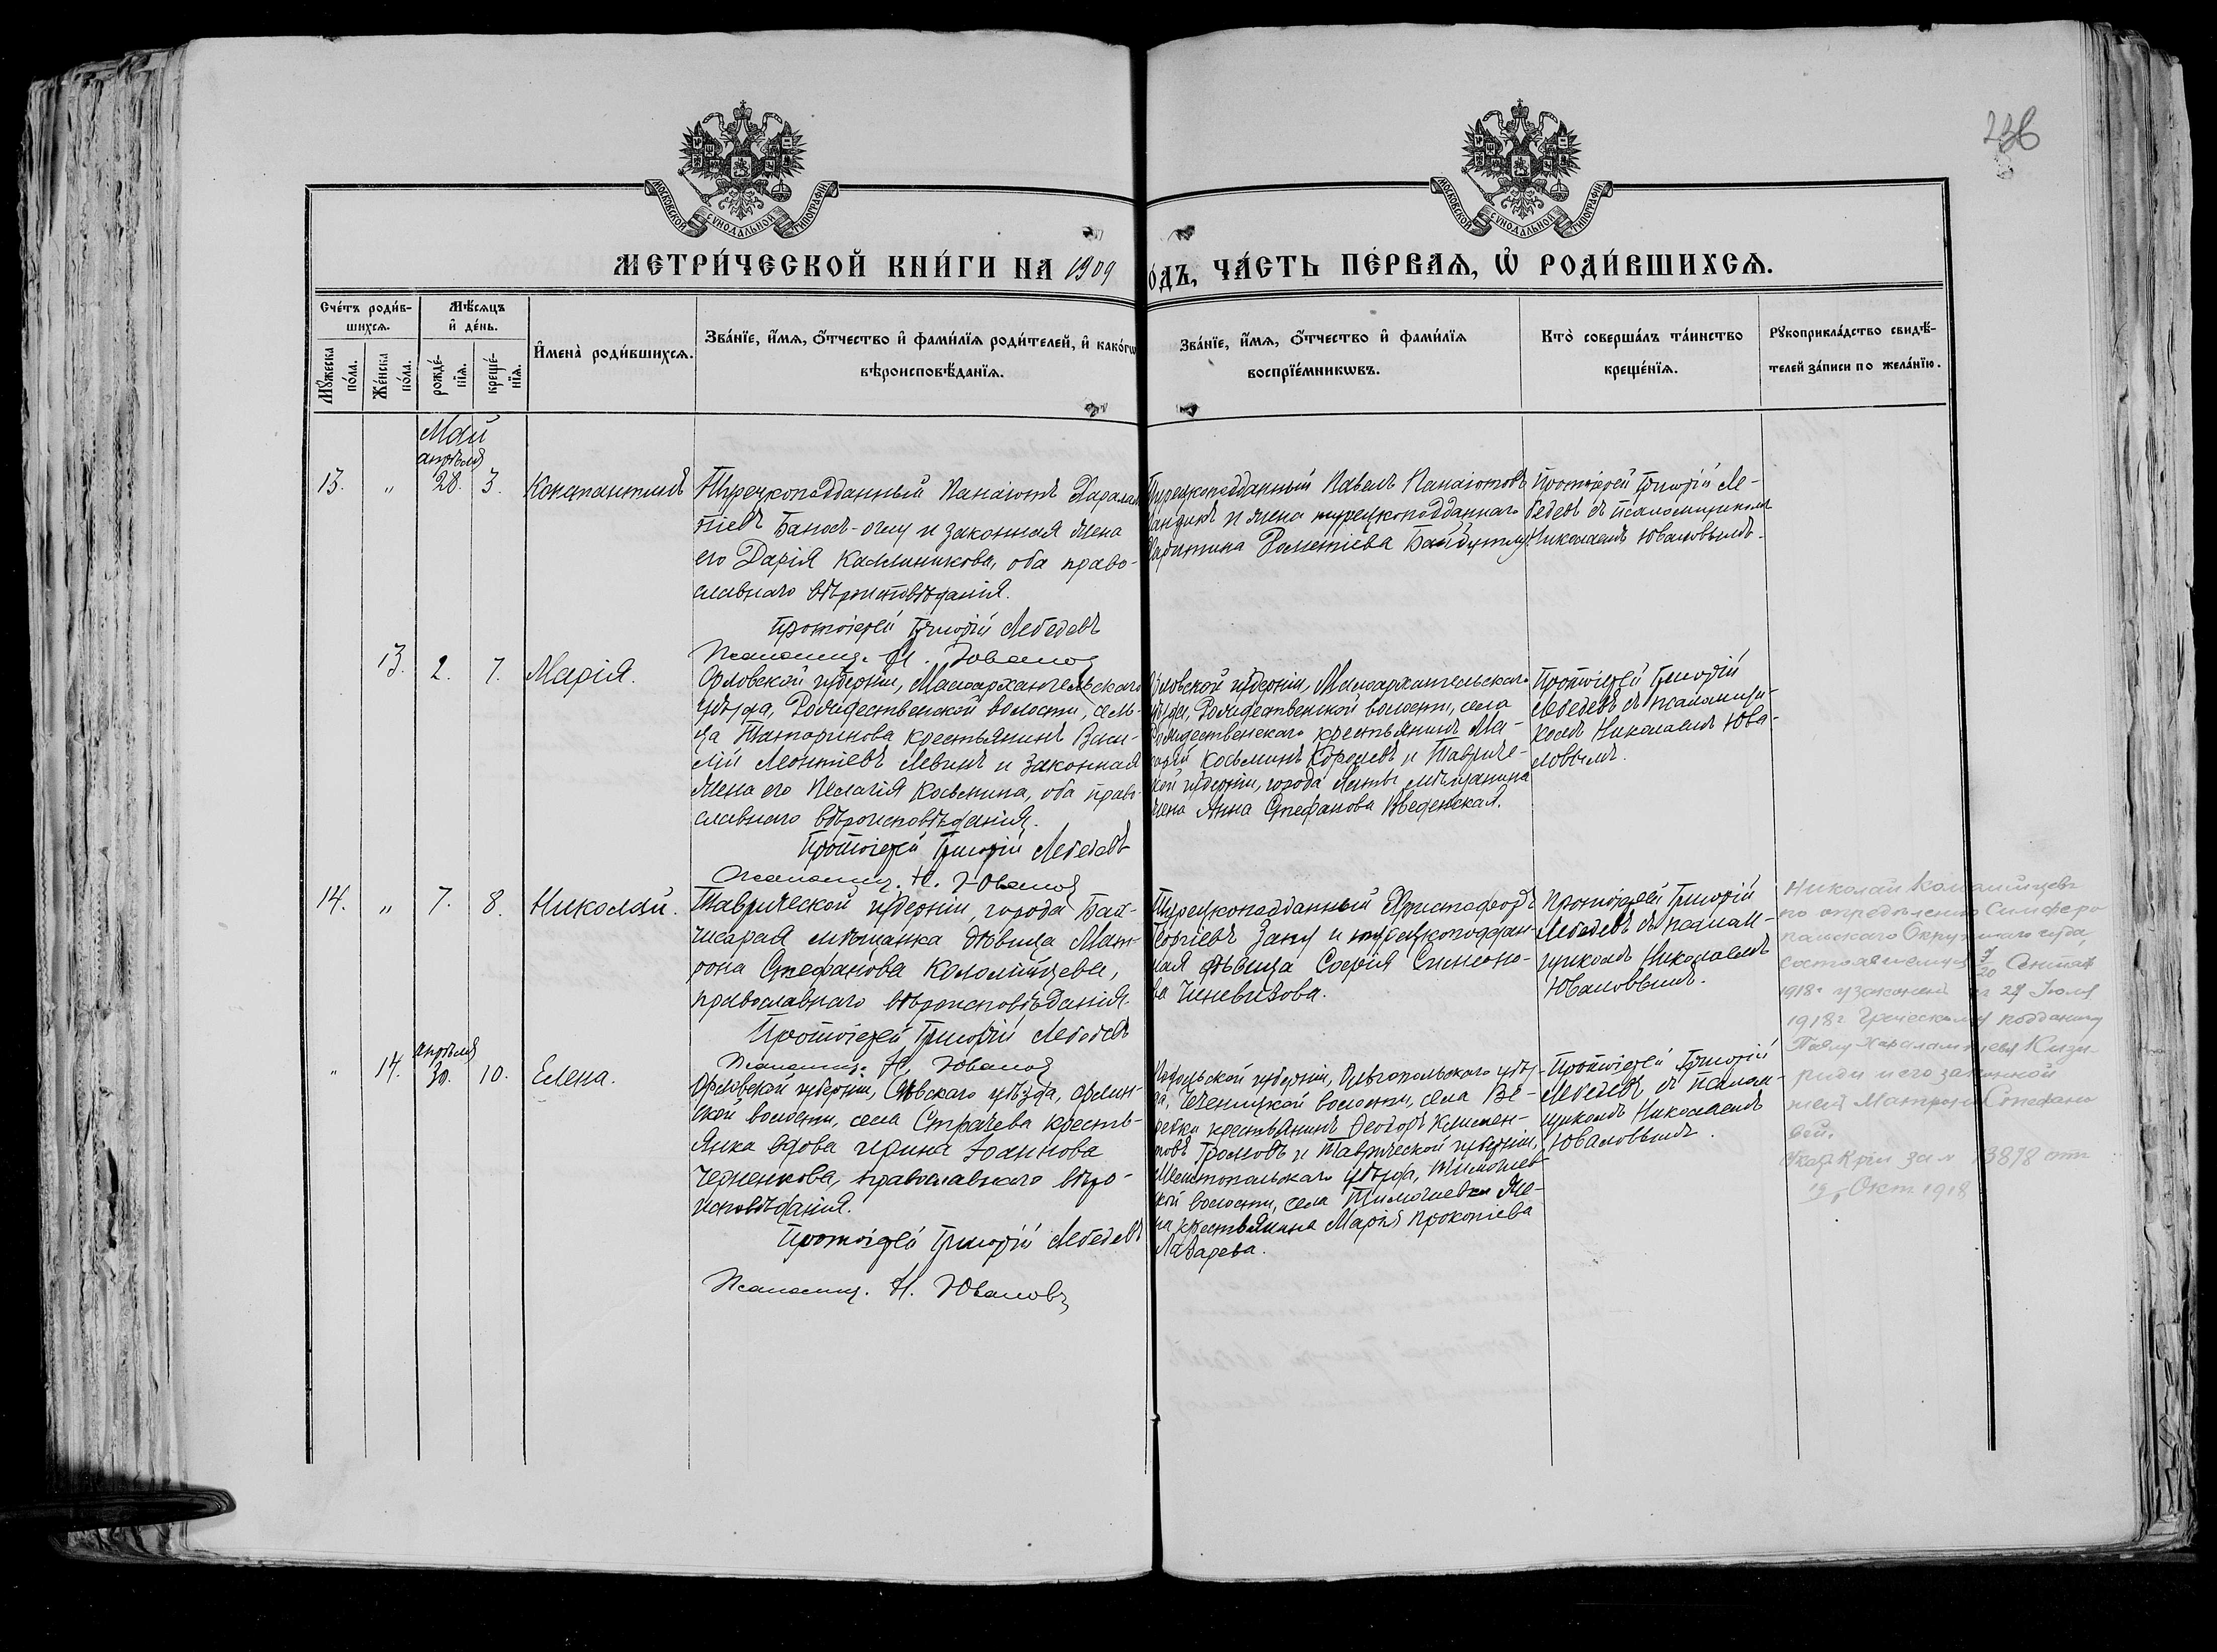 236
МОСКОВСКОЙ СУНОДАЛЬНОЙ ТИПОГРАФІИ
МОСКОВСКОЙ СУНОДАЛЬНОЙ ТИПОГРАФІИ
МЕТРИ́ЧЕСКОЙ КНИ́ГИ НА 1909
О́ДЪ, ЧА́СТЬ ПЕ́РВАѦ, Ѡ҆ РОДИ́ВШИХСѦ.
Сче́тъ роди́в-
шихсѧ.
Мꙋ́жеска
по́ла.
Же́нска
по́ла.
Мѣ́сѧцъ
и҆ де́нь.
рожде́-
нїѧ.
креще́-
нїѧ.
И҆мена̀ роди́вшихсѧ.
Зва́нїе, и҆́мѧ, ѻ҆́тчество и҆ фами́лїѧ роди́телей, и҆ како́гѡ
вѣроисповѣ́данїѧ.
Зва́нїе, и҆́мѧ, ѻ҆́тчество и҆ фами́лїѧ
воспрїе́мникѡвъ.
Кто̀ соверша́лъ та́инство
креще́нїѧ.
Рꙋкоприкла́дство свидѣ́-
телей за́писи по жела́нїю.
Май
апрѣля
13. " 28. 3. Константинъ
Турецкоподданный Панаіотъ Харалам
піевъ и законная жена
его Дарія Каллиникова, оба право-
славнаго вѣроисповѣданія.
Протоіерей Григорій Лебедевъ
Псаломщ. Н. Ювановъ
Турецкоподданный Павелъ Панаіотовъ
и жена турецкоподданнаго
Протоіерей Григорій Ле-
бедевъ съ псаломщикомъ
Николаемъ Ювановымъ.
13. 2. 7. Марія.
Орловской губерніи, Малоархангельскаго
уѣзда, Рождественской волости, сель-
ца Татаринова крестьянинъ Васи-
лій Леонтіевъ Левинъ и законная
жена его Пелагія Косьмина, оба право-
славнаго вѣроисповѣданія.
Протоіерей Григорій Лебедевъ
Псаломщ. Н. Ювановъ
Орловской губерніи, Малоархангельскаго
уѣзда, Рождественской волости, села
Рождественскаго крестьянинъ
Косьминъ и Тавриче-
ской губерніи, города Ялты мѣщанина
жена Анна Стефанова Введенская.
Протоіерей Григорій
Лебедевъ съ псаломщи-
комъ Николаемъ Юва-
новымъ.
14. " 7. 8. Николай.
Таврической губерніи, города Бах-
чисарая мѣщанка дѣвица Мат-
рона Стефанова Коломійцева,
православнаго вѣроисповѣданія.
Протоіерей Григорій Лебедевъ
Псаломщ. Н. Ювановъ
Турецкоподданный Христофоръ
Георгіевъ и турецкоподдан-
ная дѣвица Софія Симеоно-
ва
Протоіерей Григорій
Лебедевъ съ псалом-
щикомъ Николаемъ
Ювановымъ.
Николай Коломійцевъ
по опредѣленію Симферо
польскаго Окружнаго суда,
состоявшемуся 7/20 Сентяб
1918 г узаконенъ 27 Іюля
1918 г Греческому подданому
Павлу Харалампіеву
и его законной
женѣ Матронѣ Стефано
вой.
за № 13878 отъ
19 Окт 1918
апрѣля
" 14. 30. 10. Елена.
Орловской губерніи, Сѣвскаго уѣзда,
ской волости, села Страчева кресть-
янка вдова Ирина Іоаннова
Черненкова, православнаго вѣро-
исповѣданія.
Протоіерей Григорій Лебедевъ
Псаломщ. Н. Ювановъ
Подольской губерніи, Ольгопольскаго уѣз
да, волости, села
крестьянинъ Ѳеодоръ Климен-
товъ Громовъ и Таврической губерніи,
Мелитопольскаго уѣзда, Тимошев-
кой волости, села Тимошевки же-
на крестьянина Марія Прокопіева
Лазарева.
Протоіерей Григорій
Лебедевъ съ псалом-
щикомъ Николаемъ
Ювановымъ.